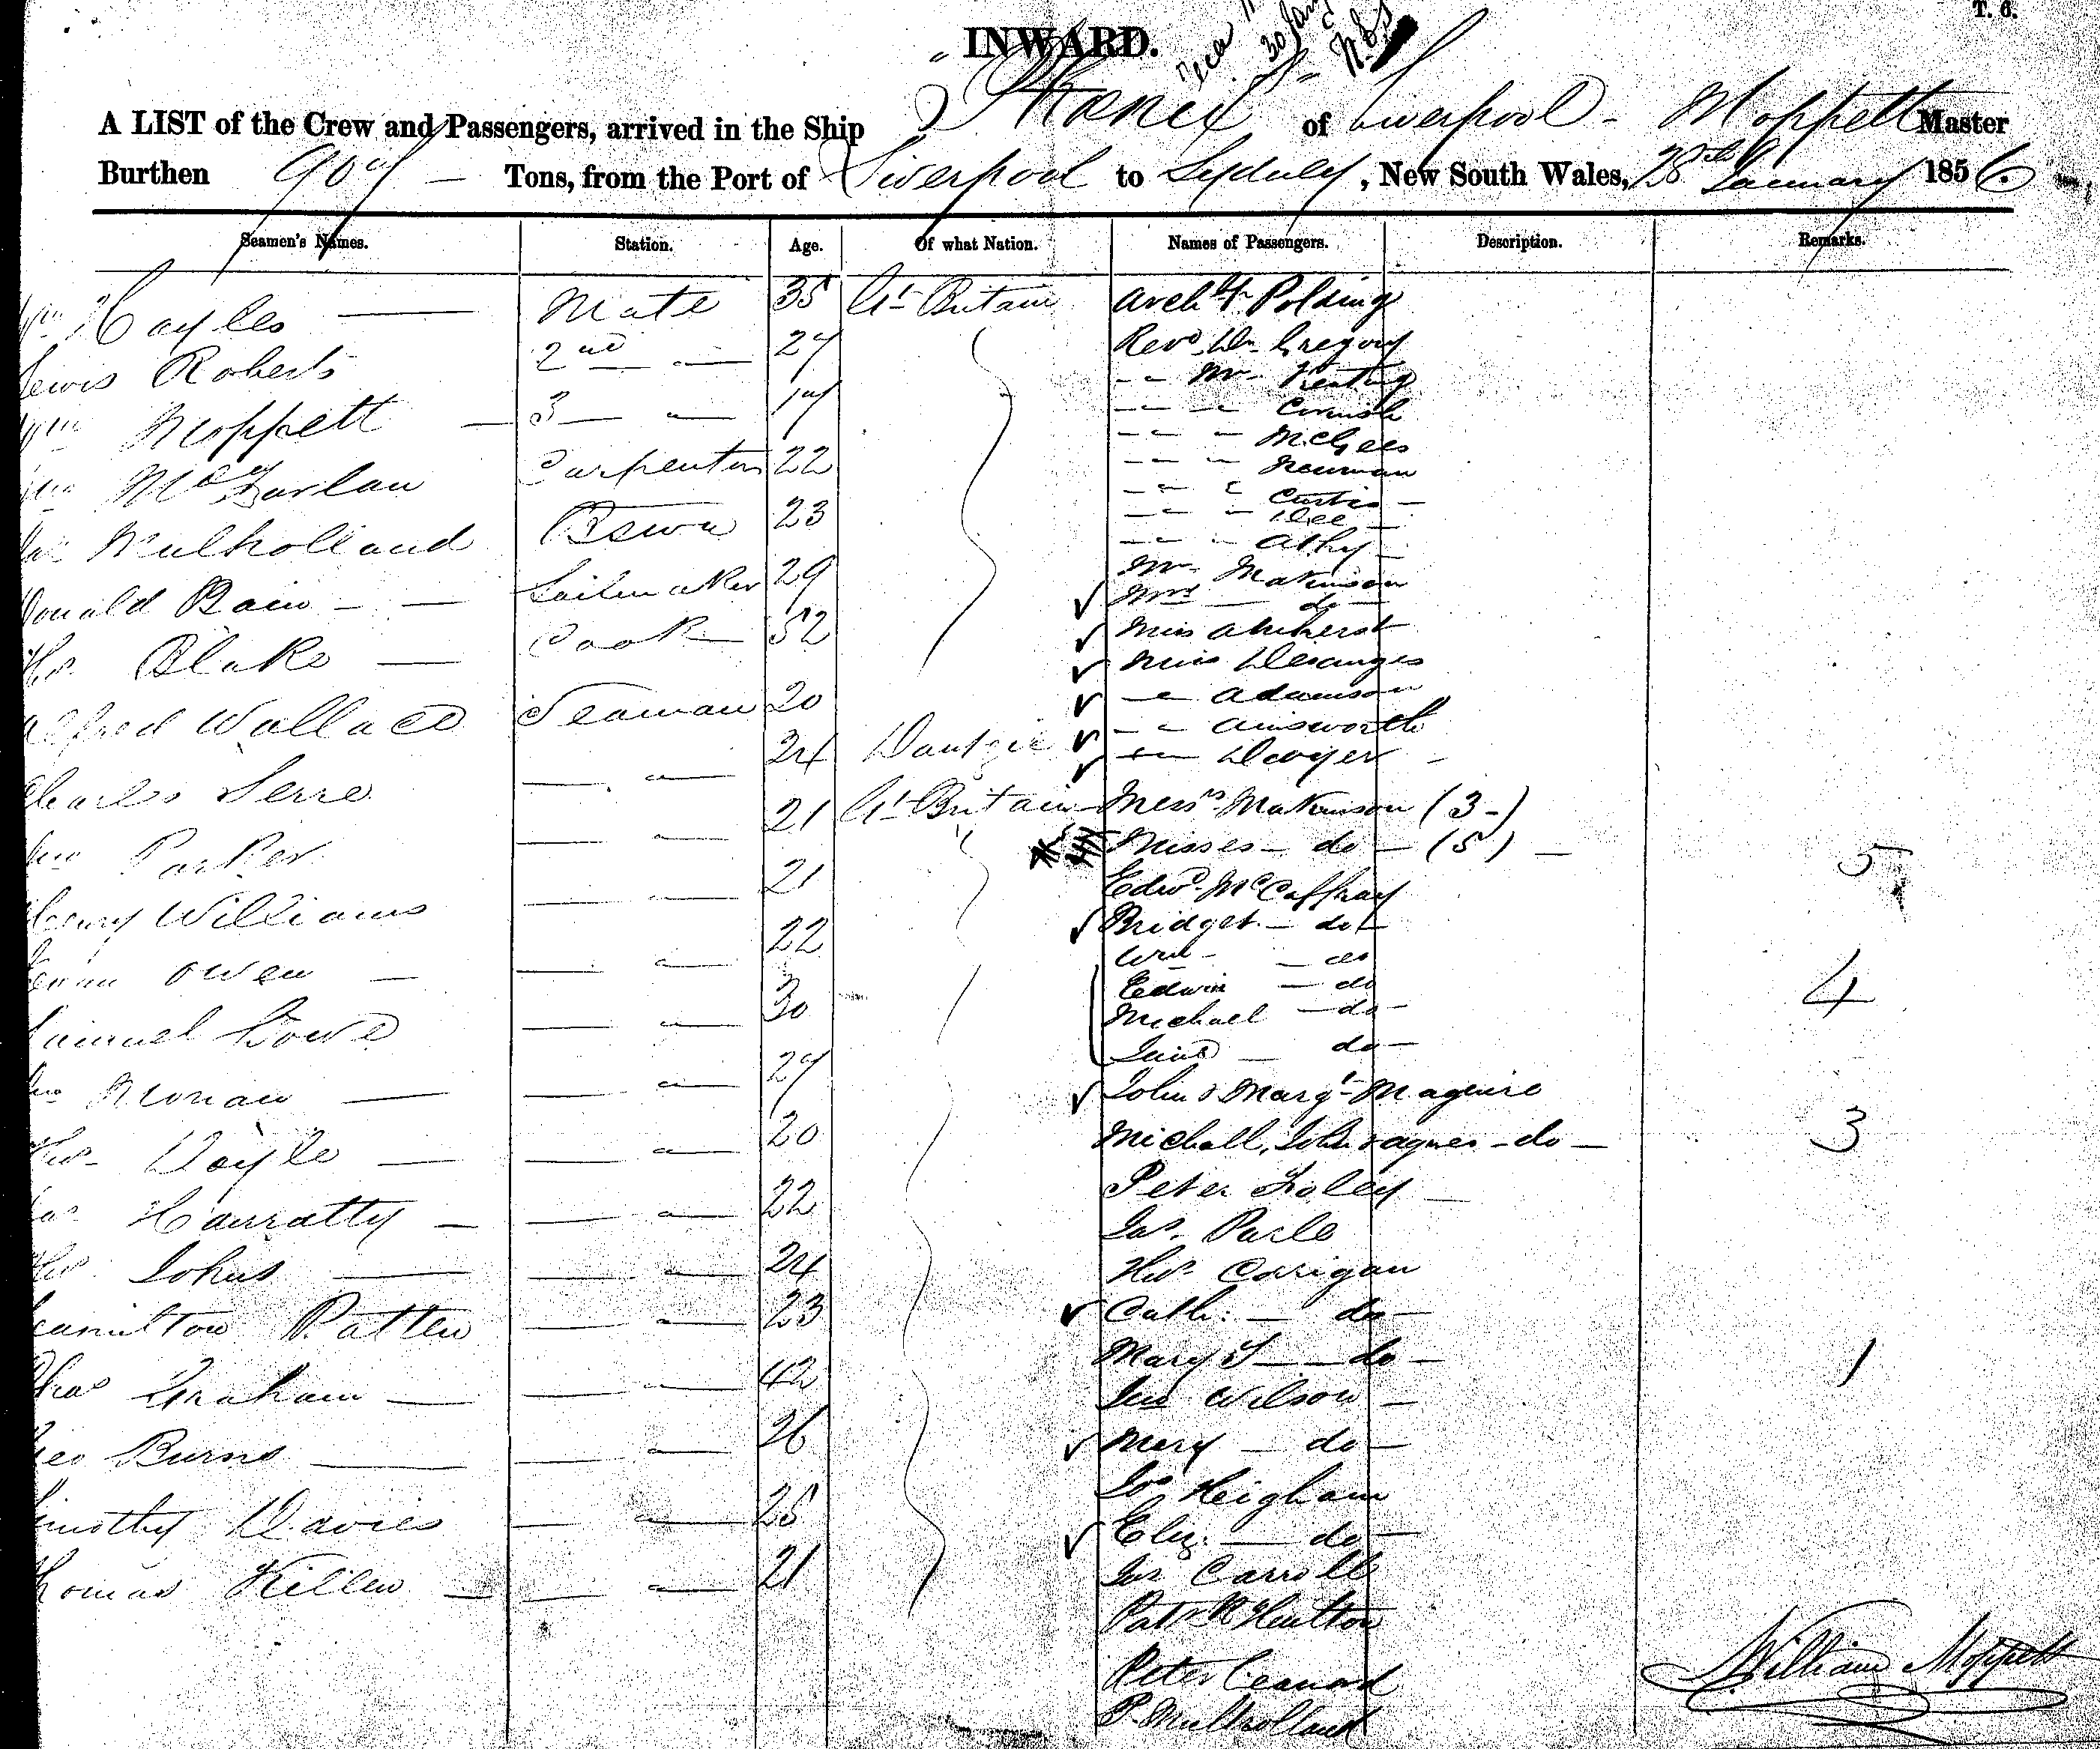 T. 6.
INWARD.
30 Jany
A LIST of the Crew and Passengers, arrived in the Ship Phoenix of Liverpool - Moppett Master
Burthen 907 — Tons, from the Port of Liverpool to Sydney, New South Wales, 28th January 1856.
Seamen's Names. Station. Age. Of what Nation. Names of Passengers. Description. Remarks.
Wm Hayles — Mate 35 Gt Britain
Lewis Roberts 2nd — 27
Wm Moppett — 3 — 17
McFarlan Carpenter 22
Mulholland 23
Donald Bain — Sailmaker 29
Thos Blake — Cook 52
Alfred Wallace Seaman 20
Charles Serre 24 Dantzic
Jno Parker 21 Gt Britain
Henry Williams 21
Owen — 22
Samuel Lowe 30
Jno — 27
Thos Doyle — 20
Jas Hanratty — 22
Thos Johns — 24
Hamilton Patten 23
Chas Graham — 42
Geo Burns — 26
Timothy Davies 25
Thomas Killen — 21
Archbp Polding
Revd Dr. Gregory
" " Mr. Keating
" " " Cornish
" " " McGees
" " " Newman
" " " Curtis —
" " " Dee —
" " " Athy —
Mr. Makinson
Mrs — do —
Miss Amherst
Miss Desanges
" " Adamson
" " Ainsworth
" " Dwyer —
Messrs Makinson (3-)
Misses — do — (5) — 5
Edwd McCaffray
Bridget — do —
Wm — do
Edwin — do 4
Michael — do —
Jane — do —
John & Margt Maguire
Michall, John & Agnes — do — 3
Peter Foley —
Jas. Parle
Thos. Corrigan
Cath: — do —
Mary J — do — 1
Jno Wilson —
Mary — do —
Jos Heigham
Eliz: — do —
Jas Carroll
Patrk Heulton
Peter Leonard
P. Mulholland
William Moppett